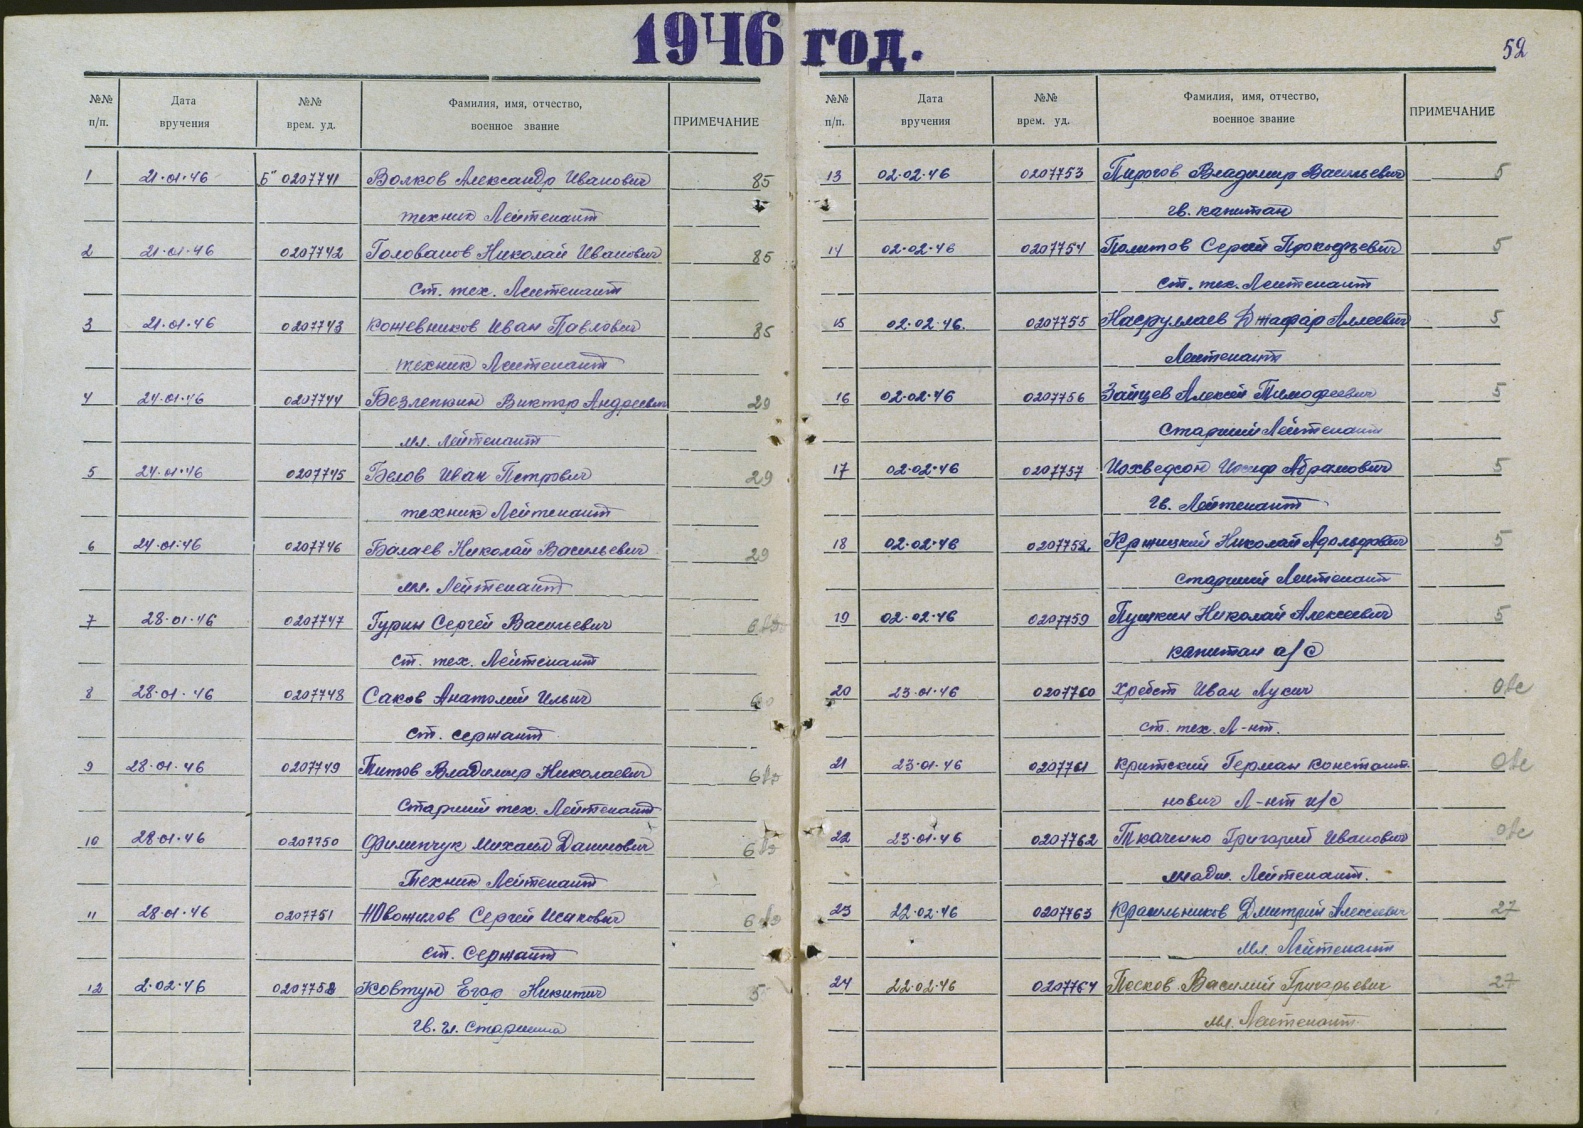 1946 год.
52
№№ п/п. Дата вручения №№ врем. уд. Фамилия, имя, отчество, военное звание ПРИМЕЧАНИЕ
1 21·01·46 Б" 0207741 Волков Александр Иванович 85
техник Лейтенант
2 21·01·46 0207742 Голованов Николай Иванович 85
ст. тех. Лейтенант
3 21·01·46 0207743 Кожевников Иван Павлович 85
техник Лейтенант
4 24·01·46 0207744 Безлепкин Виктор Андреевич 29
мл. Лейтенант
5 24·01·46 0207745 Белов Иван Петрович 29
техник Лейтенант
6 24·01·46 0207746 Балаев Николай Васильевич 29
мл. Лейтенант
7 28·01·46 0207747 Гурин Сергей Васильевич
ст. тех. Лейтенант
8 28·01·46 0207748 Саков Анатолий Ильич
ст. сержант
9 28·01·46 0207749 Титов Владимир Николаевич
Старший тех. Лейтенант
10 28·01·46 0207750 Филипчук Михаил Данилович
Техник Лейтенант
11 28·01·46 0207751 Сергей Исакович
ст. Сержант
12 2·02·46 0207752 Ковтун Егор Никитич 5
гв. Старшина
№№ п/п. Дата вручения №№ врем. уд. Фамилия, имя, отчество, военное звание ПРИМЕЧАНИЕ
13 02·02·46 0207753 Пирогов Владимир Васильевич 5
гв. капитан
14 02·02·46 0207754 Политов Сергей Прокофьевич 5
ст. тех. Лейтенант
15 02·02·46. 0207755 Насруллаев Джафар Аллеевич 5
Лейтенант
16 02·02·46 0207756 Зайцев Алексей Тимофеевич 5
Старший Лейтенант
17 02·02·46 0207757 Иохведсон Иосиф Абрамович 5
гв. Лейтенант
18 02·02·46 0207758 Кржицкий Николай Адольфович 5
старший Лейтенант
19 02·02·46 0207759 Пушкин Николай Алексеевич 5
капитан а/с
20 23·01·46 0207760 Хребет Иван Лукич
ст. тех. Л-нт.
21 23·01·46 0207761 Критский Герман Констант
нович Л-нт и/с
22 23·01·46 0207762 Ткаченко Григорий Иванович
младш. Лейтенант.
23 22·02·46 0207763 Красильников Дмитрий Алексеевич 27
Мл. Лейтенант
24 22·02·46 0207764 Песков Василий Григорьевич 27
Мл. Лейтенант